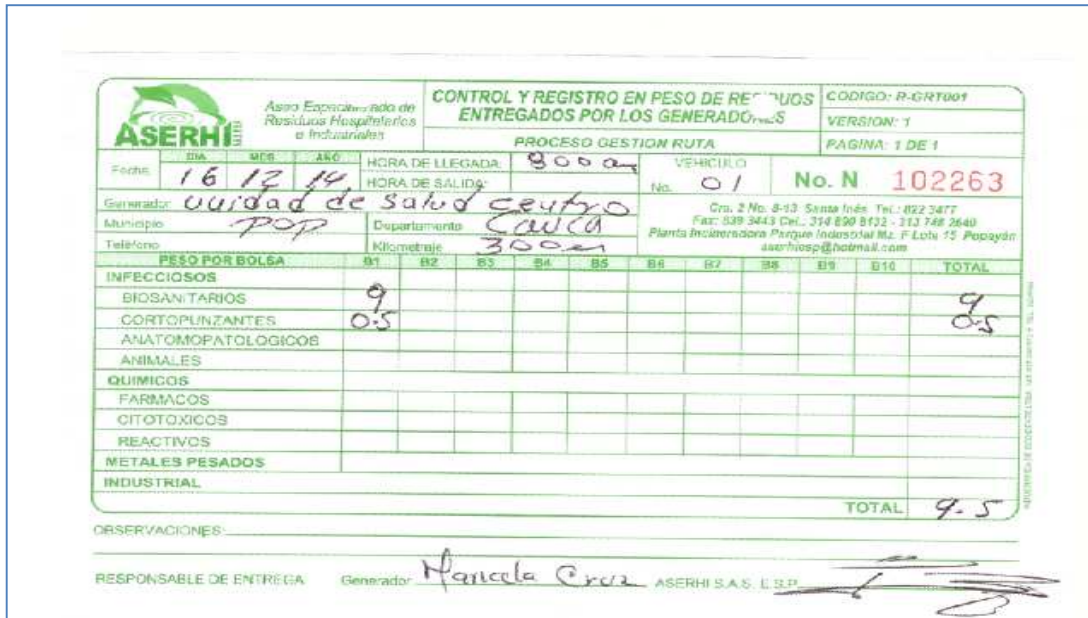 ASERHI
Aseo Especializado de
Residuos Hospitalarios
e Industriales
CONTROL Y REGISTRO EN PESO DE RESIDUOS
ENTREGADOS POR LOS GENERADORES
PROCESO GESTION RUTA
CODIGO: R-GRT001
VERSION: 1
PAGINA: 1 DE 1
Fecha: DIA MES AÑO
16 12 14
HORA DE LLEGADA: 800 am
HORA DE SALIDA:
VEHICULO
No. 01
No. N 102263
Generador: unidad de salud centro
Municipio POP Departamento Cauca
Teléfono Kilometraje 300
Cra. 2 No. 8-13 Santa Inés Tel.: 822 3477
Fax: 839 3443 Cel.: 314 890 8132 - 313 748 2640
Planta Incineradora Parque Industrial Mz. F Lote 15 Popayán
aserhiesp@hotmail.com
PESO POR BOLSA B1 B2 B3 B4 B5 B6 B7 B8 B9 B10 TOTAL
INFECCIOSOS
BIOSANITARIOS 9 9
CORTOPUNZANTES 0.5 0.5
ANATOMOPATOLOGICOS
ANIMALES
QUIMICOS
FARMACOS
CITOTOXICOS
REACTIVOS
METALES PESADOS
INDUSTRIAL
TOTAL 9.5
OBSERVACIONES:
RESPONSABLE DE ENTREGA Generador Maricela Cruz ASERHI S.A.S. E.S.P.